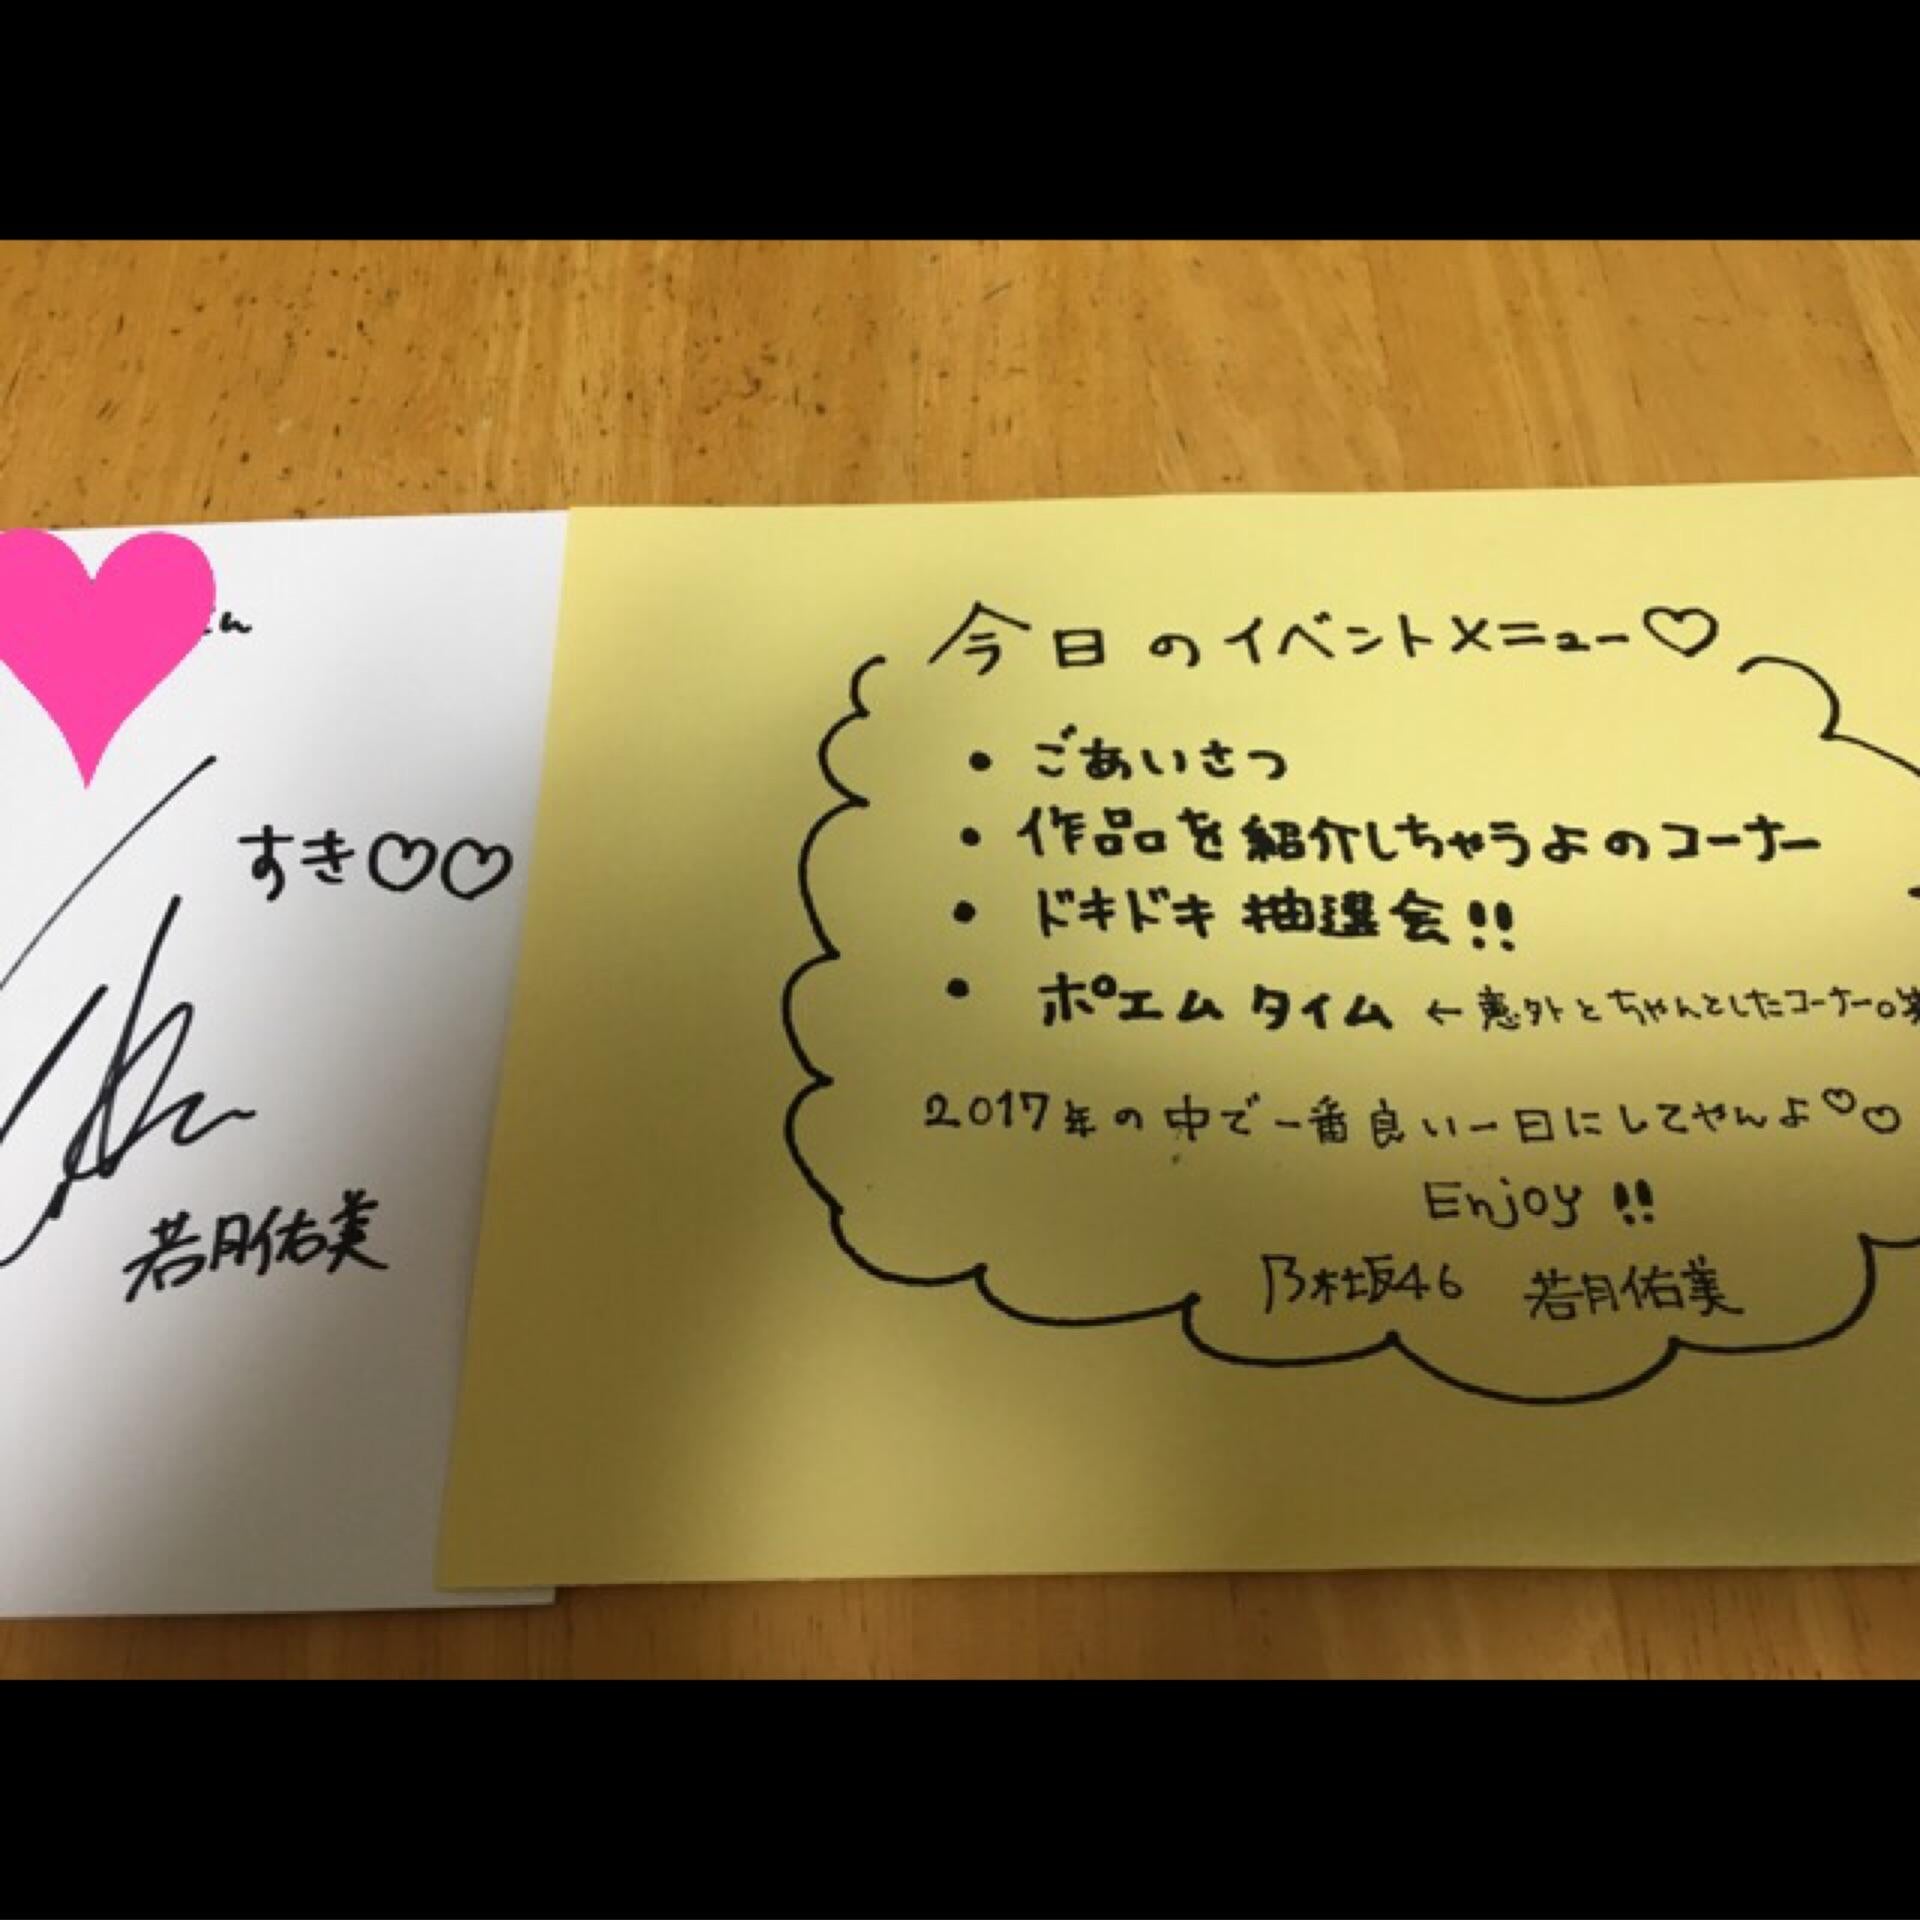 さん
すき♡♡
若月佑美
今日のイベントメニュー♡
• ごあいさつ
• 作品を紹介しちゃうよのコーナー
• ドキドキ抽選会!!
• ポエムタイム ←意外とちゃんとしたコーナー。笑
2017年の中で一番良い一日にしてやんよ♡♡
Enjoy !!
乃木坂46 若月佑美